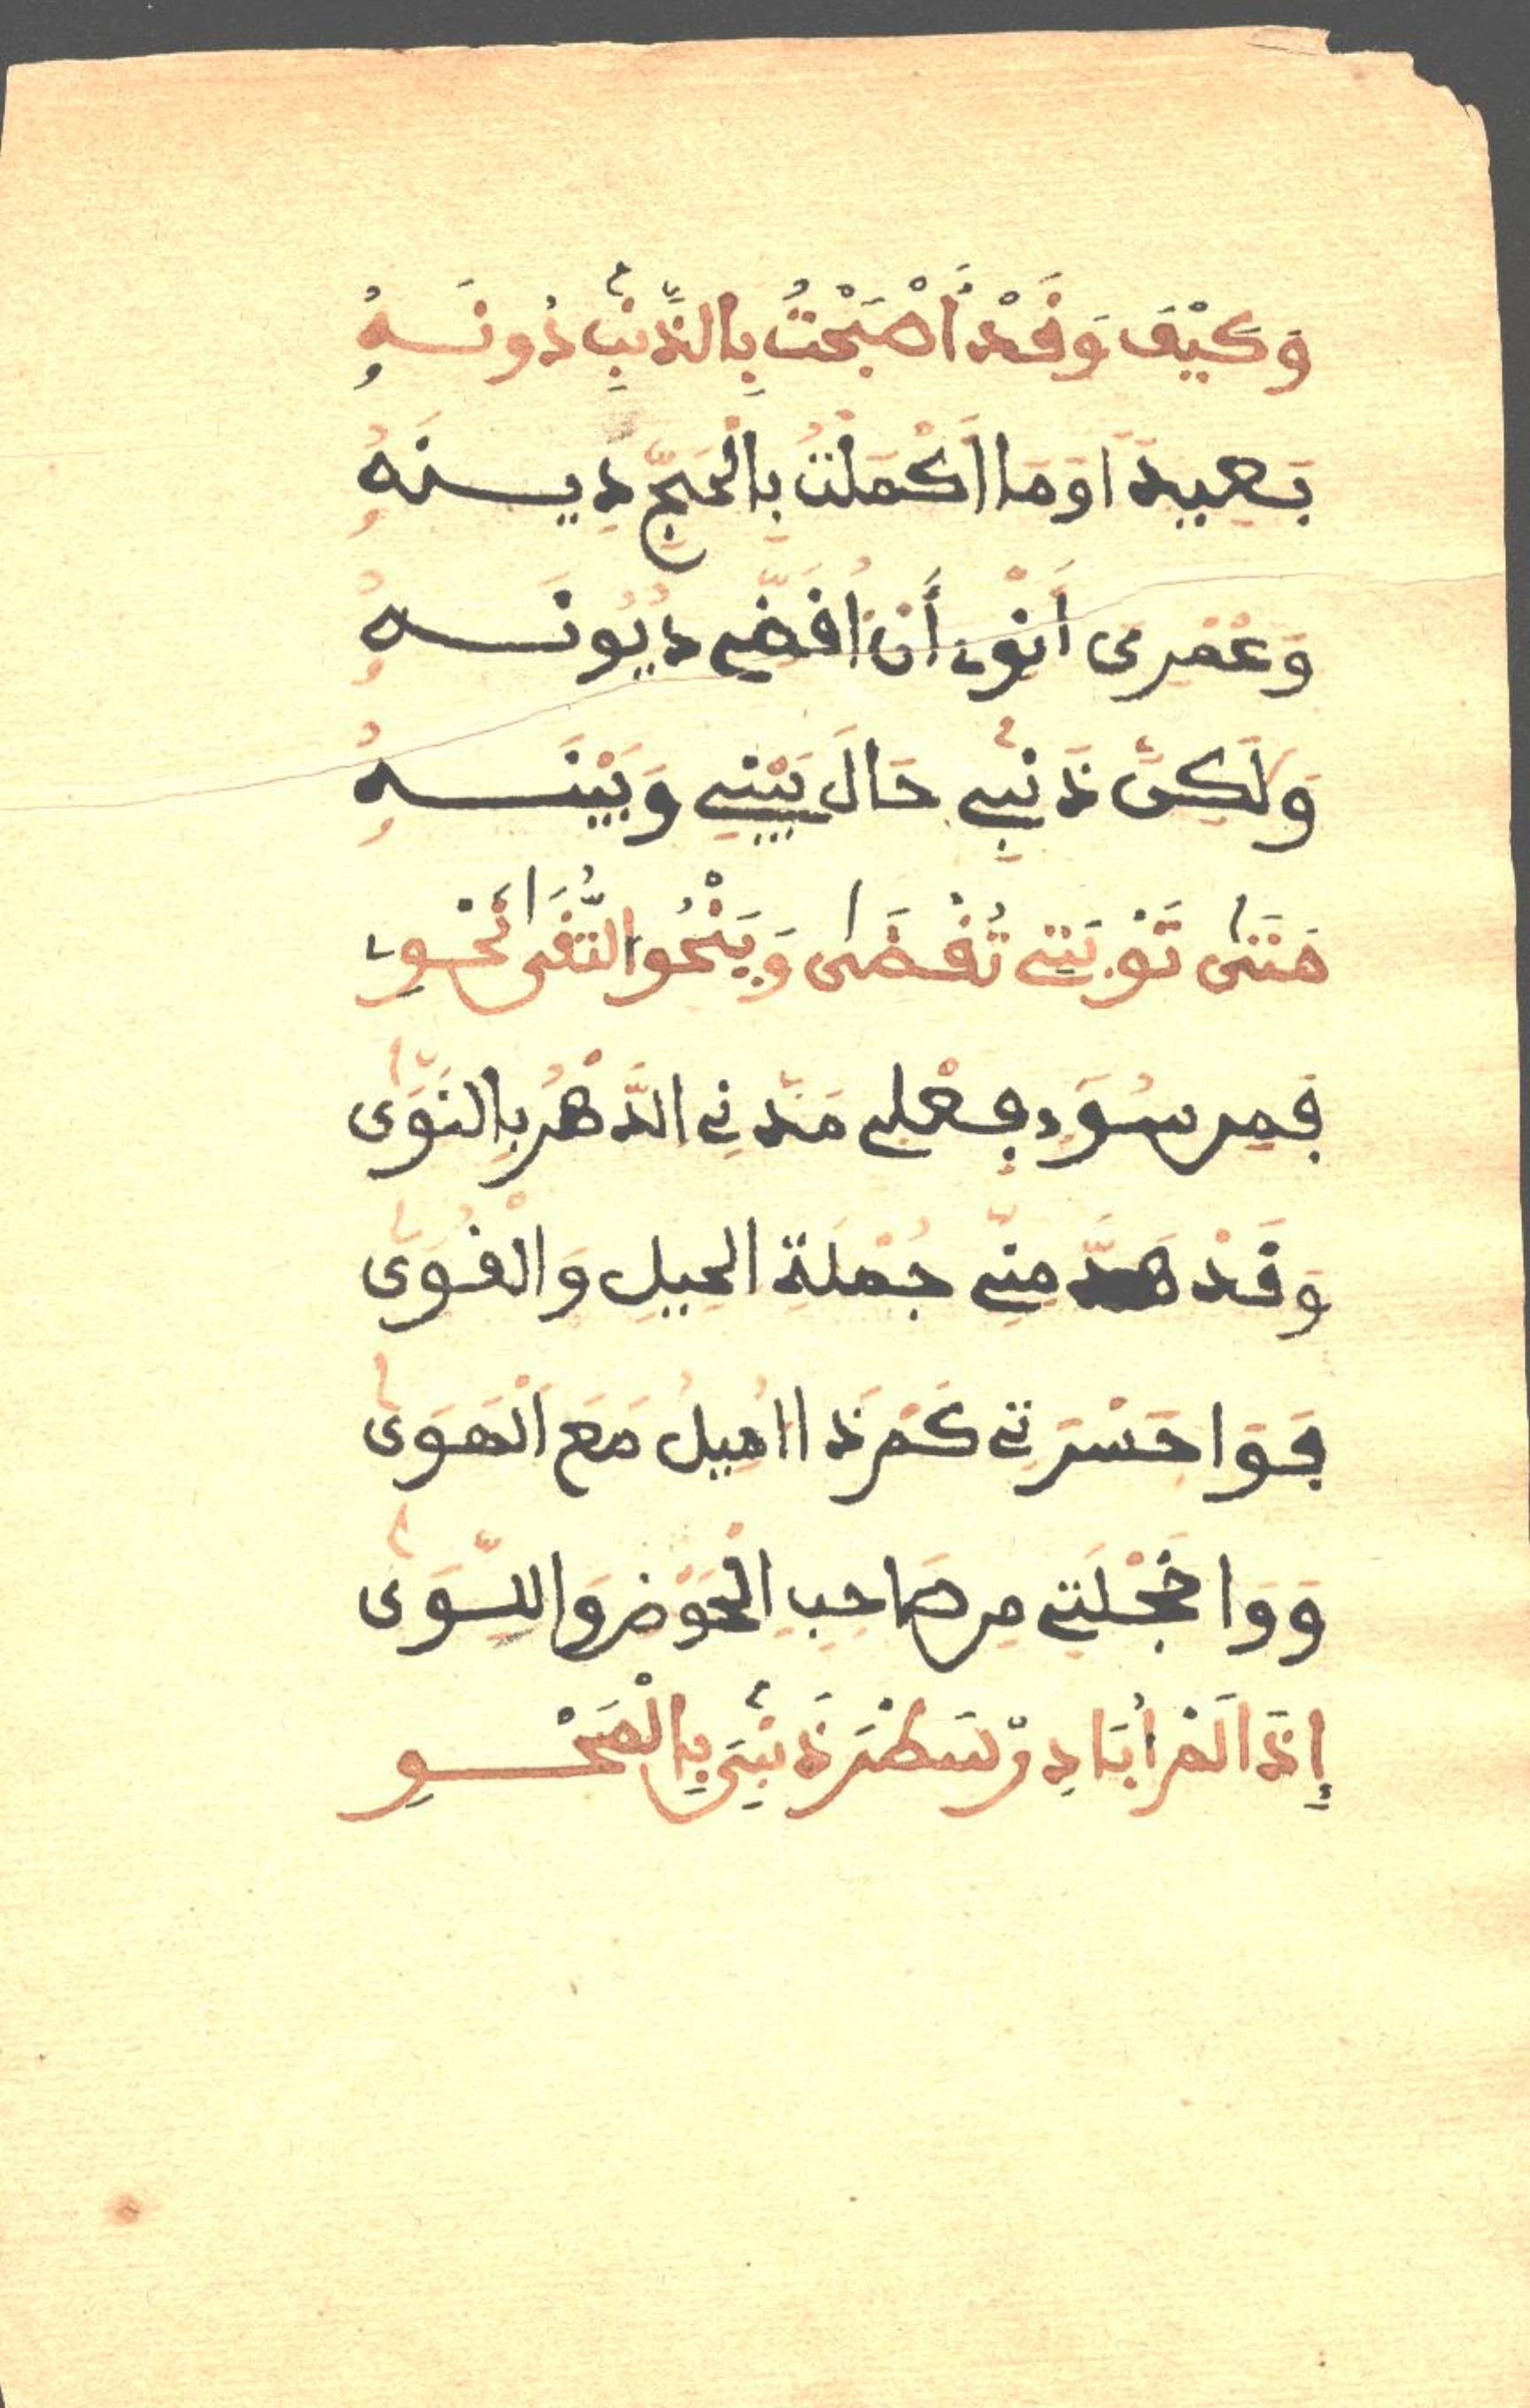 وَكَيْفَ وَقَدْ أَصْبَحْتُ بِالذَّنْبِ دُونَهُ
بَعِيدًا وَمَا أَكْمَلْتُ بِالْحَجِّ دِينَهُ
وَعُمْرِي أَنْوِي أَنْ أُقَضِّي دُيُونَهُ
وَلَكِنَّ ذَنْبِي حَالَ بَيْنِي وَبَيْنَهُ
مَتَى تَوْبَتِي تُقْضَى وَيَنْحُو التُّقَى نَحْوِي
فَمِن سُوءِ فِعْلِي مَدَّنِي الدَّهْرُ بِالنَّوَى
وَقَدْ هَدَّ مِنِّي جُمْلَةَ الحِيلِ وَالْقُوَى
فَوَا حَسْرَتِي كَمْ ذَا اُمِيلُ مَعَ الْهَوَى
وَوَا خَجْلَتِي مِن صَاحِبِ الْحَوْضِ وَاللِّوَى
إِذَا لَمْ أُبَادِرْ سَطْرَ ذَنْبِيَ بِالْمَحْوِ